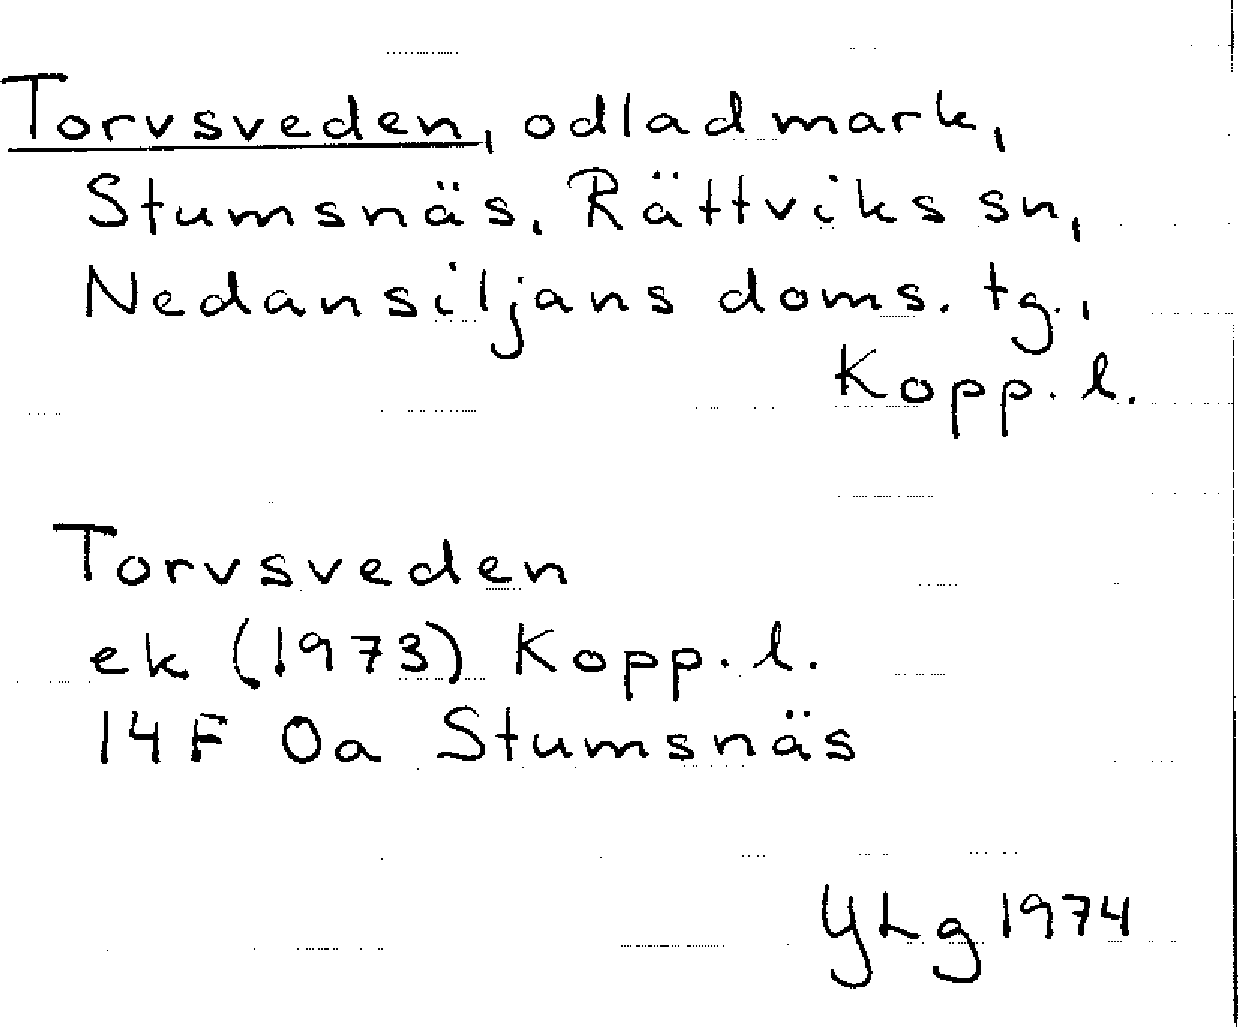 Torvsveden, odlad mark,
Stumsnäs, Rättviks sn,
Nedansiljans doms. tg.,
Kopp. l.
Torvsveden
ek (1973) Kopp. l.
14F 0a Stumsnäs
YLg 1974